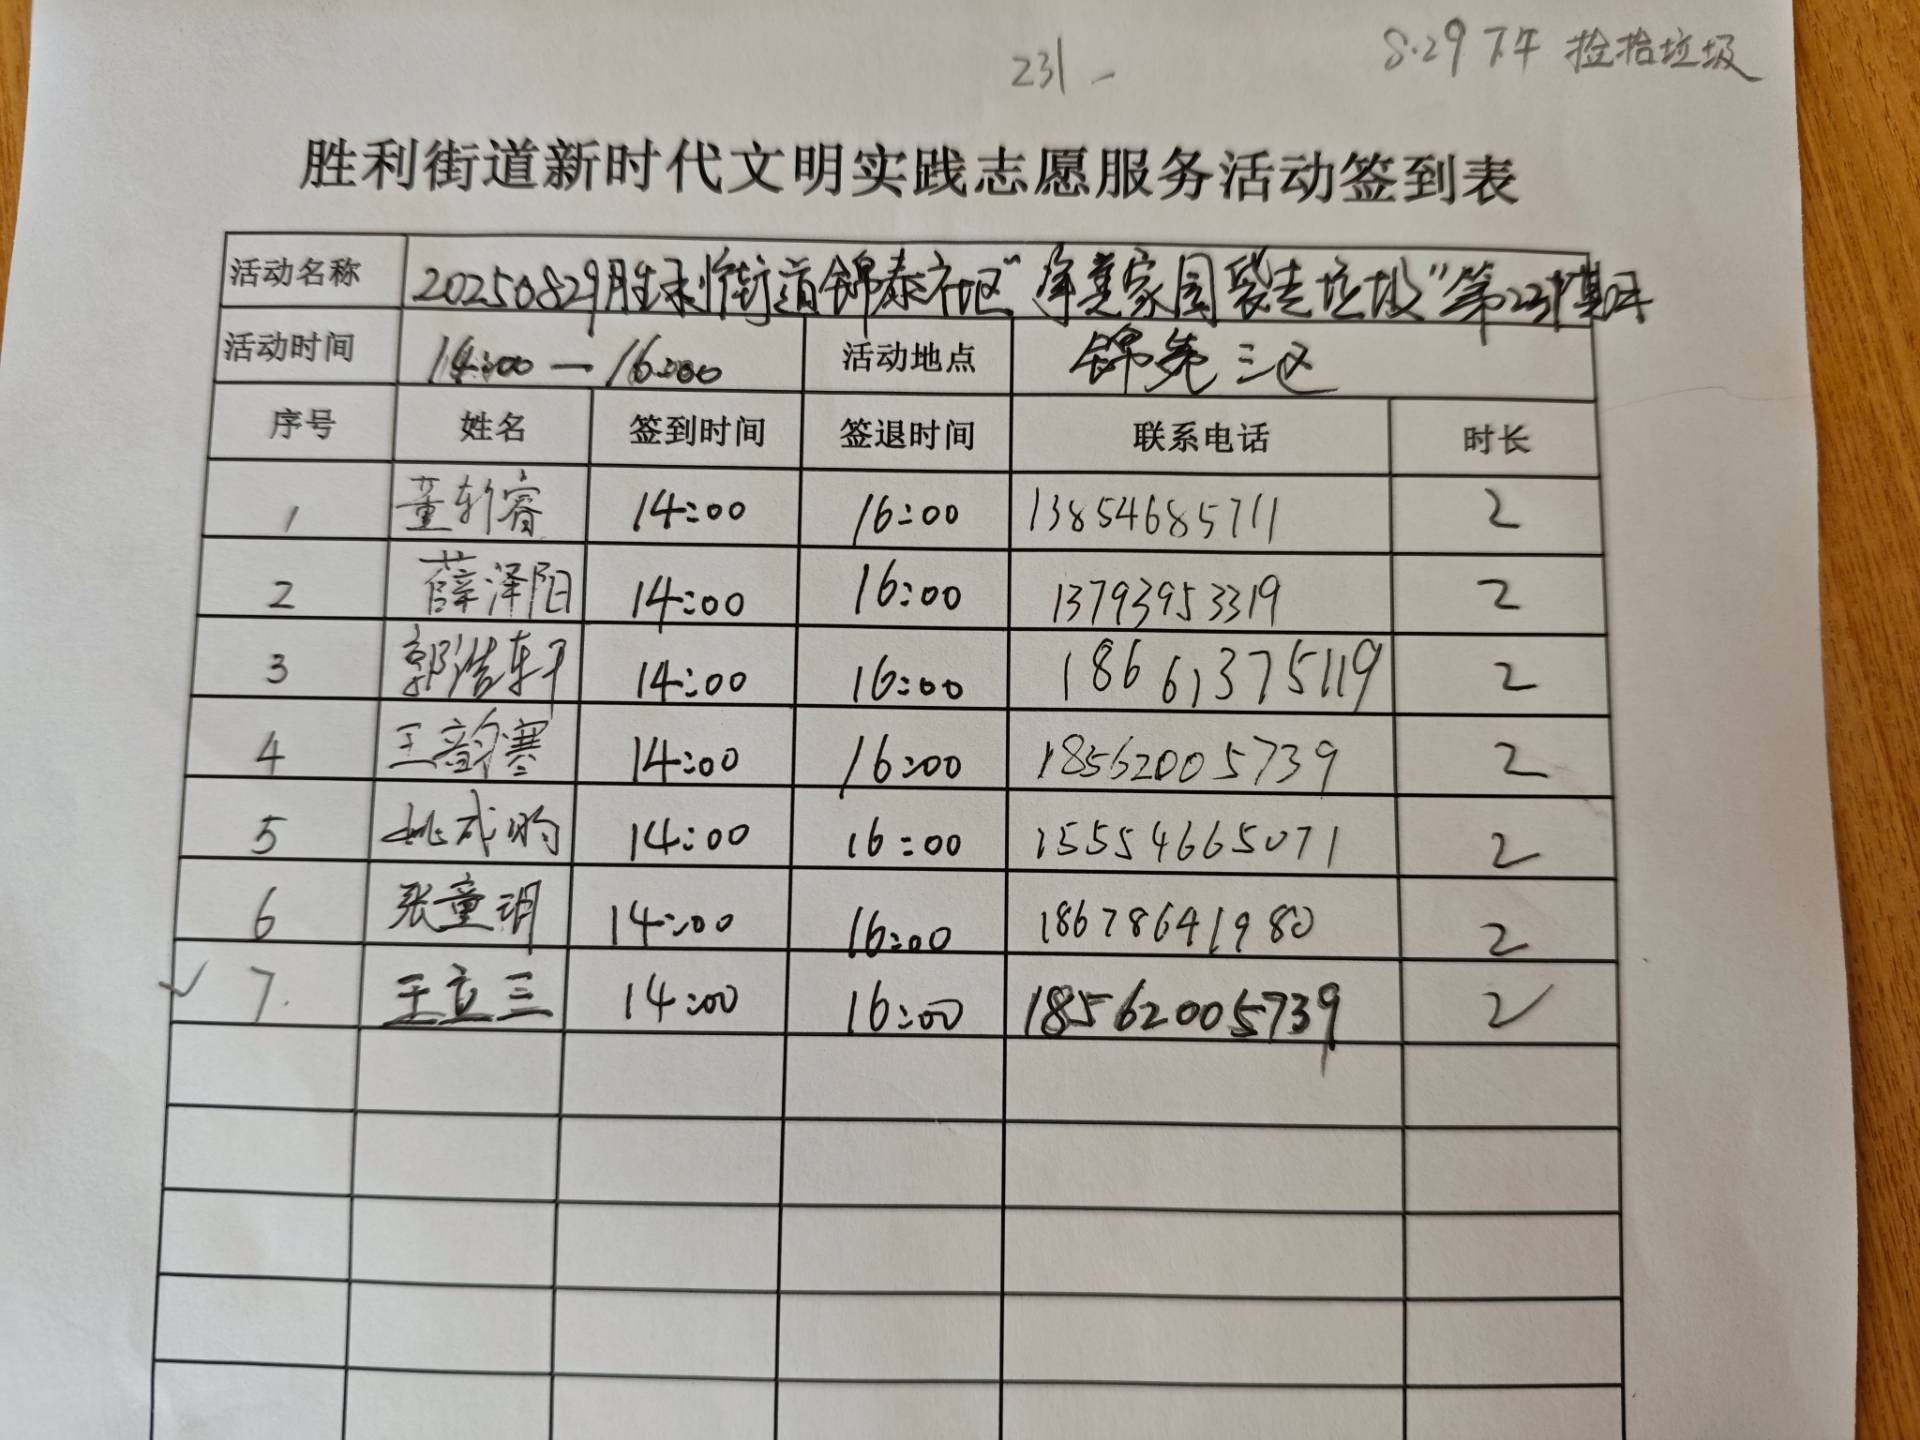 8.29下午 捡拾垃圾
231
胜利街道新时代文明实践志愿服务活动签到表
活动名称 20250829胜利街道锦泰社区“净美家园袋走垃圾”第231期
活动时间 14:00—16:00 活动地点 锦苑三区
序号 姓名 签到时间 签退时间 联系电话 时长
1 董轩睿 14:00 16:00 13854685711 2
2 薛泽阳 14:00 16:00 13793953319 2
3 郭浩轩 14:00 16:00 18661375119 2
4 王韵骞 14:00 16:00 18562005739 2
5 姚成昀 14:00 16:00 15554665071 2
6 张童玥 14:00 16:00 18678641980 2
7. 王立三 14:00 16:00 18562005739 2